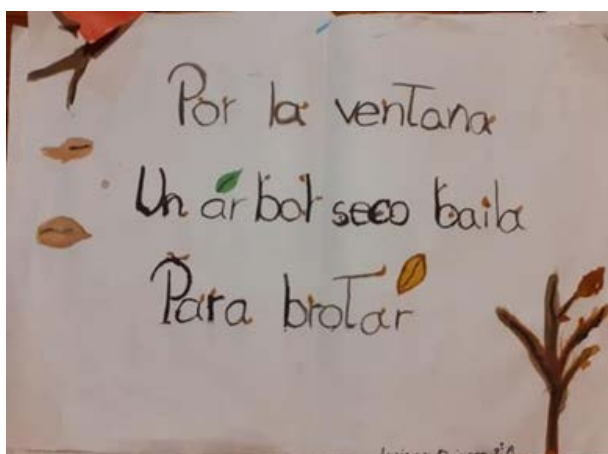 Por la ventana
Un árbol seco baila
Para brotar